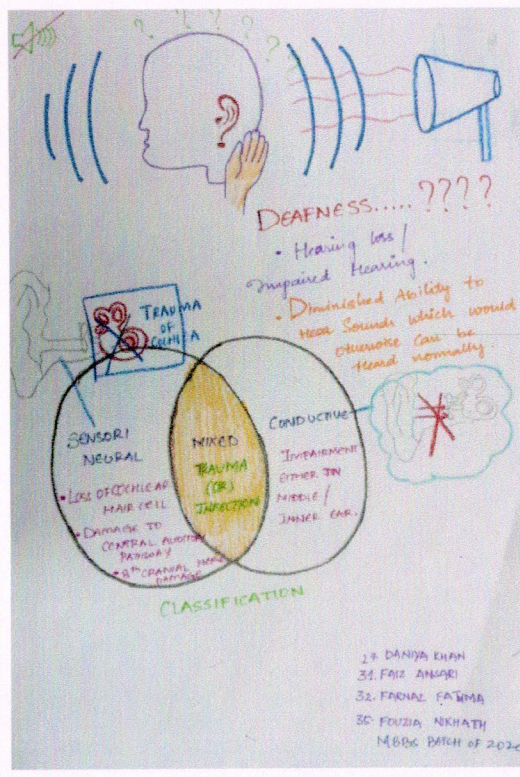 ? ? ? ? ?
DEAFNESS..... ????
• Hearing loss /
Impaired Hearing.
• Diminished Ability to
Hear Sounds which would
otherwise can be
Heard normally.
TRAUMA
OF
COCHLEA
SENSORI
NEURAL
• LOSS OF COCHLEAR
HAIR CELL
• DAMAGE TO
CENTRAL AUDITORY
PATHWAY
• 8th CRANIAL NERVE
DAMAGE
MIXED
TRAUMA
(OR)
INFECTION
CONDUCTIVE
IMPAIRMENT
EITHER IN
MIDDLE /
INNER EAR.
CLASSIFICATION
27. DANIYA KHAN
31. FAIZ ANSARI
32. FARNAZ FATHIMA
35. FOUZIA NIKHATH
MBBS BATCH OF 2020